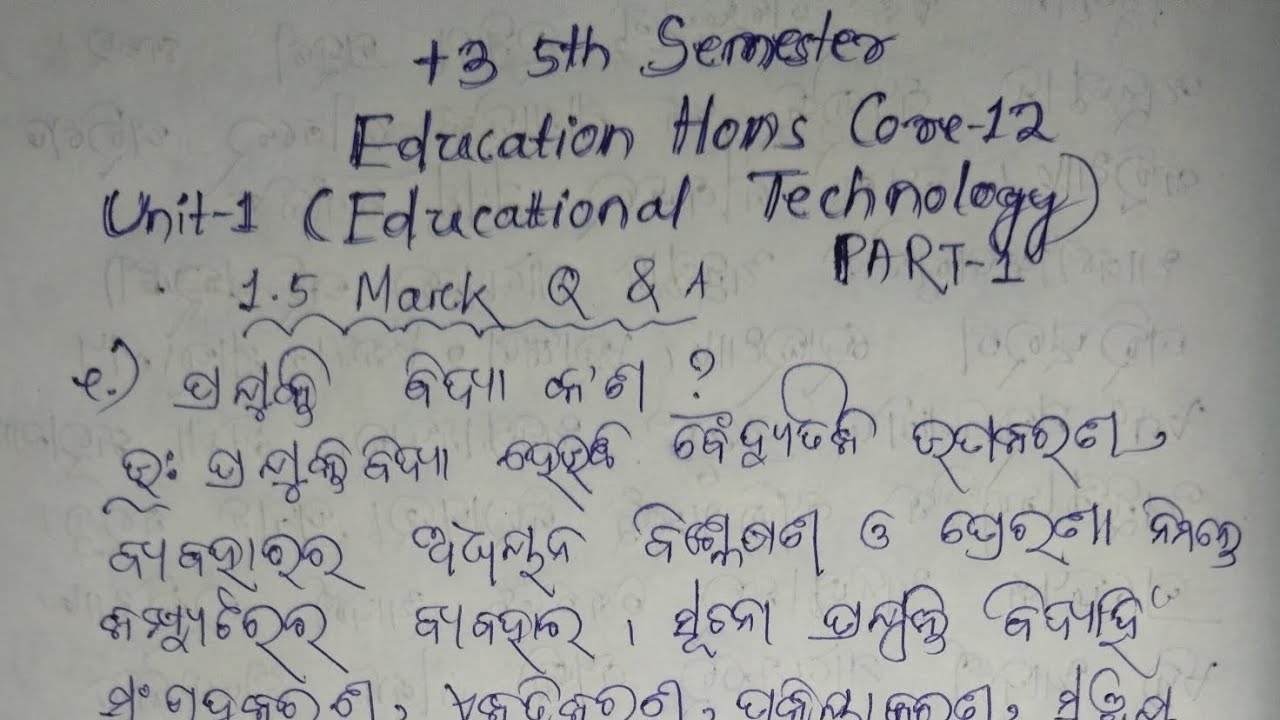 +3 5th Semester
Education Hons Core-12
Unit-1 (Educational Technology)
PART-1
1.5 Marck Q & A
୧.) ପ୍ରଯୁକ୍ତି ବିଦ୍ୟା କ'ଣ ?
ଉଃ ପ୍ରଯୁକ୍ତି ବିଦ୍ୟା ହେଉଛି ବୈଦ୍ୟୁତିକ ଉପକରଣ,
ବ୍ୟବହାରର ଅଧ୍ୟୟନ ବିଶ୍ଳେଷଣ ଓ ପ୍ରେରଣା ନିମନ୍ତେ
କମ୍ପ୍ୟୁଟରର ବ୍ୟବହାର । ସୂଚନା ପ୍ରଯୁକ୍ତି ବିଦ୍ୟାହିଁ
ସଂଗ୍ରହକରଣ, ଏକତ୍ରିକରଣ,